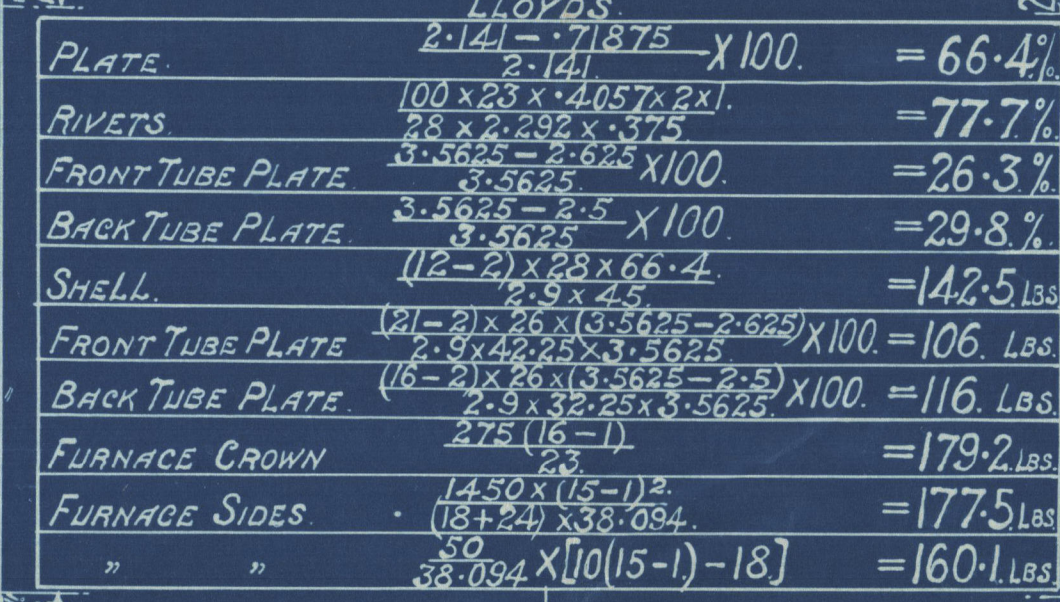 LLOYDS.
PLATE. (2·141 − ·71875)/2·141. X 100. = 66·4%.
RIVETS. (100 × 23 × ·4057 × 2 × 1.)/(28 × 2·292 × ·375.) = 77·7.%.
FRONT TUBE PLATE. (3·5625 − 2·625)/3·5625. X 100. = 26·3.%.
BACK TUBE PLATE. (3·5625 − 2·5)/3·5625 X 100. = 29·8.%.
SHELL. ((12−2) × 28 × 66·4.)/(2·9 × 45.) = 142·5. LBS
FRONT TUBE PLATE ((21−2) × 26 × (3·5625−2·625))/(2·9 × 42·25 × 3·5625.) X 100. = 106. LBS.
BACK TUBE PLATE. ((16−2) × 26 × (3·5625−2·5))/(2·9 × 32·25 × 3·5625.) X 100. = 116. LBS.
FURNACE CROWN (275 (16−1))/23. = 179·2. LBS.
FURNACE SIDES. (1450 × (15−1)².)/((18+24) × 38·094.) = 177·5. LBS
" " 50/38·094 X [10(15−1.) − 18.] = 160·1. LBS.